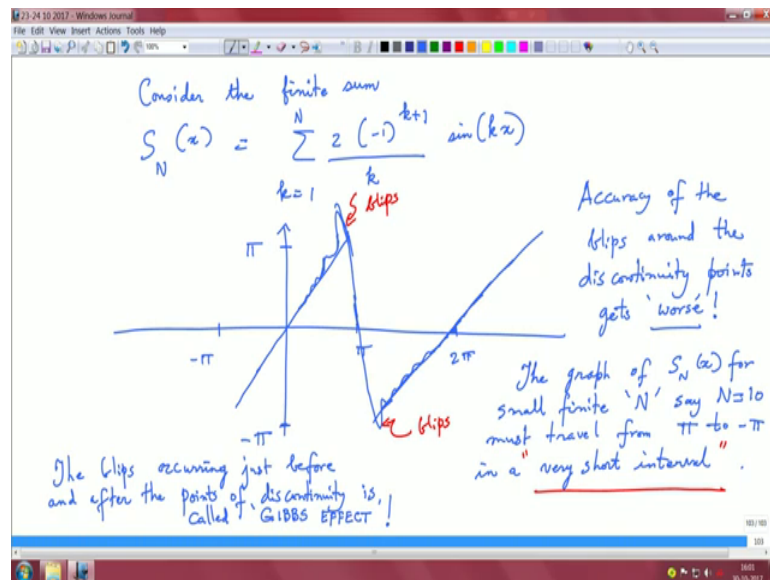 23-24 10 2017 - Windows Journal
File Edit View Insert Actions Tools Help
100%
Consider the finite sum
S_N (x) = N ∑ k=1 2 (-1)^{k+1} / k sin(kx)
Blips
π
-π
π
2π
-π
Blips
Accuracy of the
blips around the
discontinuity points
gets 'worse'!
The graph of S_N (x) for
small finite 'N' say N=10
must travel from π to -π
in a "very short interval".
The blips occurring just before
and after the points of discontinuity is
called 'GIBBS EFFECT'!
103 / 103
103
16:01
30-10-2017